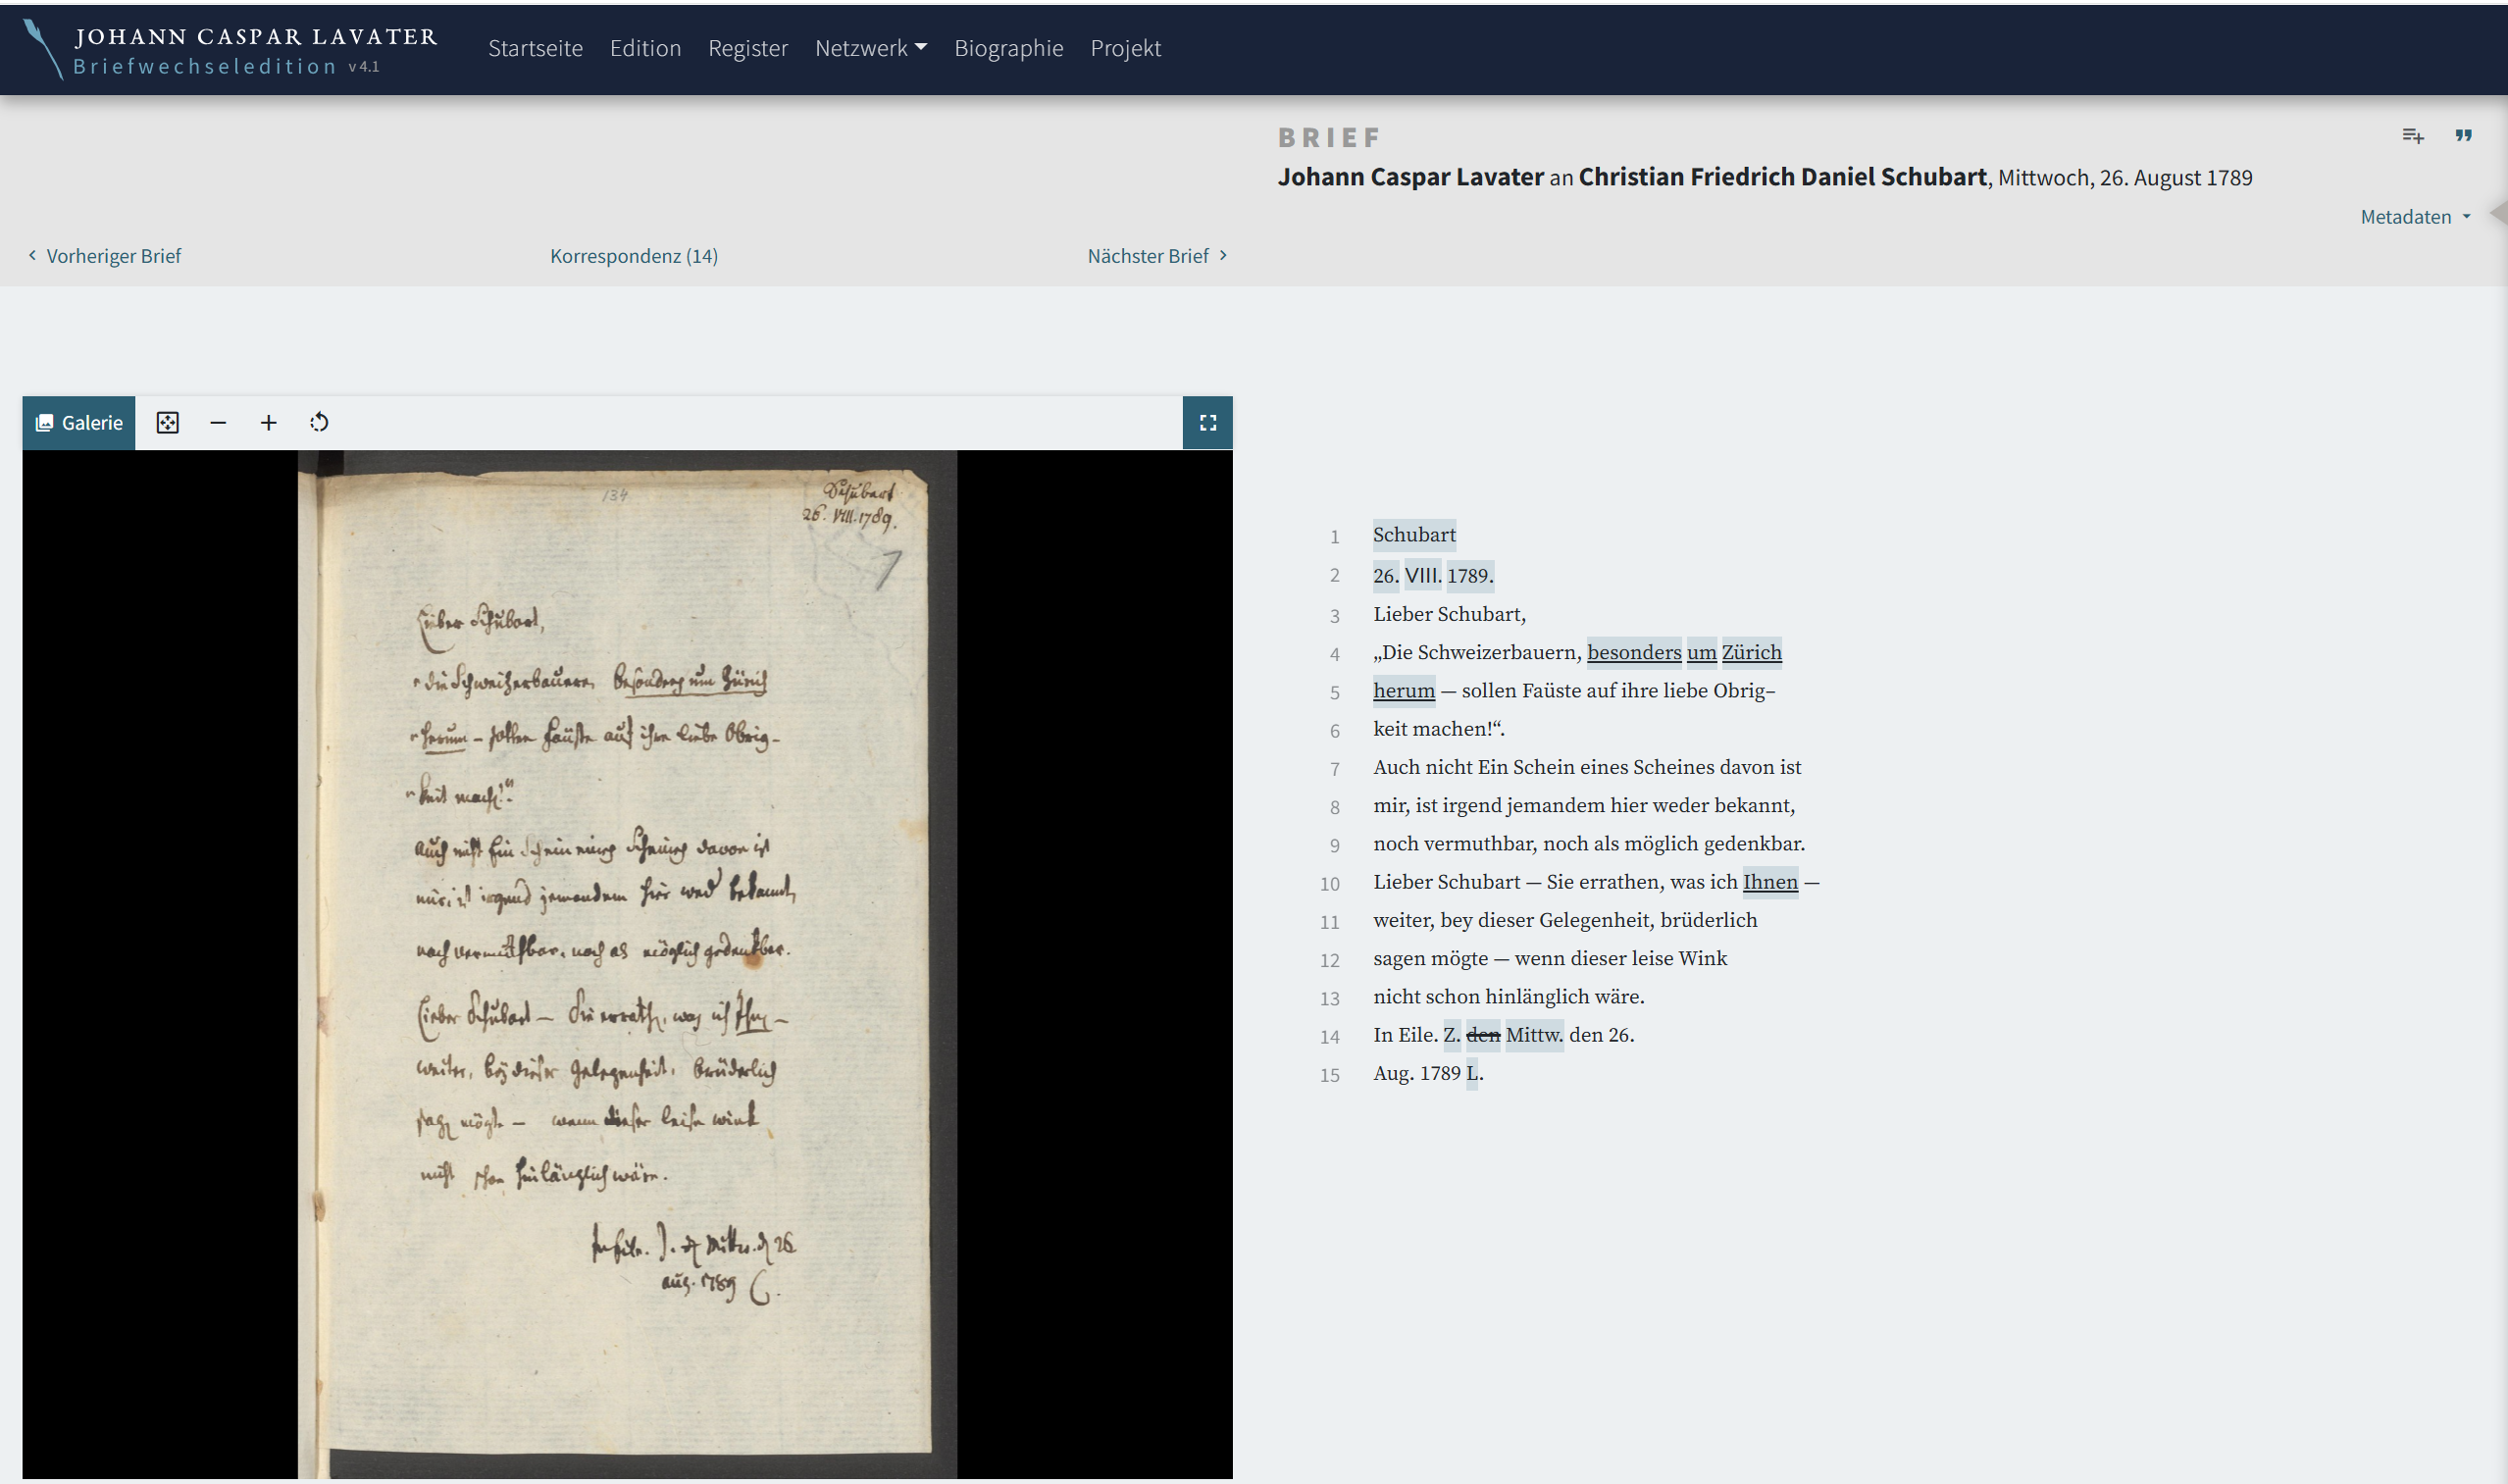 JOHANN CASPAR LAVATER
Briefwechseledition v 4.1
Startseite Edition Register Netzwerk Biographie Projekt
BRIEF
Johann Caspar Lavater an Christian Friedrich Daniel Schubart, Mittwoch, 26. August 1789
Metadaten
Vorheriger Brief Korrespondenz (14) Nächster Brief
Galerie
134
Schubart
26. VIII. 1789.
7
Lieber Schubart,
"die Schweizerbauern, besonders um Zürich
"herum – sollen Faüste auf ihre liebe Obrig-
"keit machen!".
Auch nicht Ein Schein eines Scheines davon ist
mir, ist irgend jemandem hier weder bekannt,
noch vermuthbar, noch als möglich gedenkbar.
Lieber Schubart — Sie errathen, was ich Ihnen —
weiter, bey dieser Gelegenheit, brüderlich
sagen mögte — wenn dieser leise Wink
nicht schon hinlänglich wäre.
In Eile. Z. den Mittw. den 26.
Aug. 1789 L.
1 Schubart
2 26. VIII. 1789.
3 Lieber Schubart,
4 „Die Schweizerbauern, besonders um Zürich
5 herum — sollen Faüste auf ihre liebe Obrig–
6 keit machen!“.
7 Auch nicht Ein Schein eines Scheines davon ist
8 mir, ist irgend jemandem hier weder bekannt,
9 noch vermuthbar, noch als möglich gedenkbar.
10 Lieber Schubart — Sie errathen, was ich Ihnen —
11 weiter, bey dieser Gelegenheit, brüderlich
12 sagen mögte — wenn dieser leise Wink
13 nicht schon hinlänglich wäre.
14 In Eile. Z. den Mittw. den 26.
15 Aug. 1789 L.